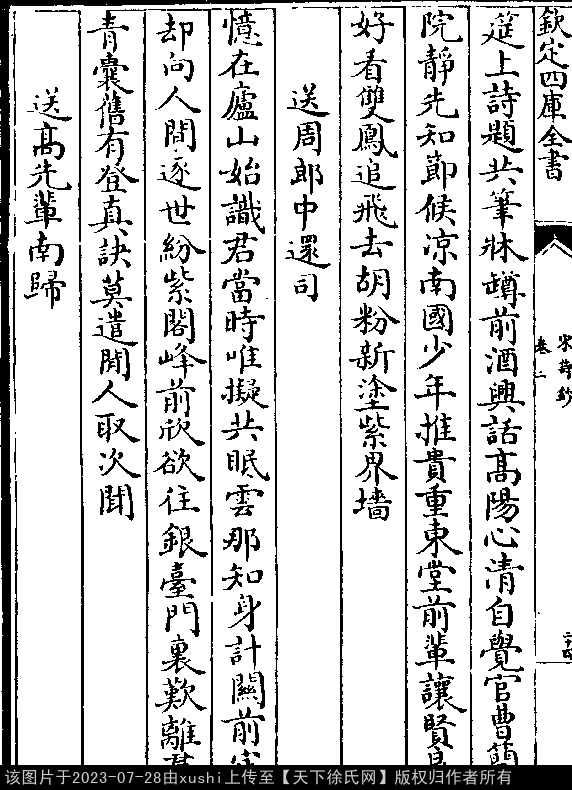 欽定四庫全書
宋詩鈔
卷二
二十四
筵上詩題共筆牀罇前酒興話髙陽心清自覺官曹簡
院靜先知節候凉南國少年推貴重東堂前輩讓賢良
好看雙鳳追飛去胡粉新塗紫界墻
送周郎中還司
憶在廬山始識君當時唯擬共眠雲那知身計關前定
却向人間逐世紛紫閣峰前欣欲往銀臺門裏歎離羣
青囊舊有登真訣莫遣閒人取次聞
送髙先輩南歸
该图片于2023-07-28由xushi上传至【天下徐氏网】版权归作者所有